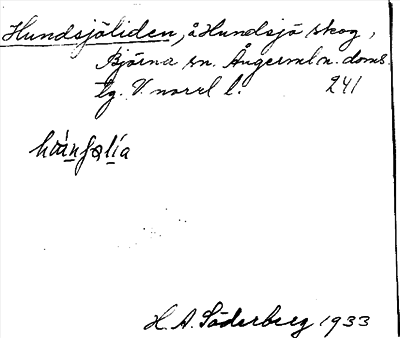 Hundsjöliden, å Hundsjö skog,
Björna sn. Ångerml n. doms.
lg. V. norrl l. 241
H. A. Söderberg 1933